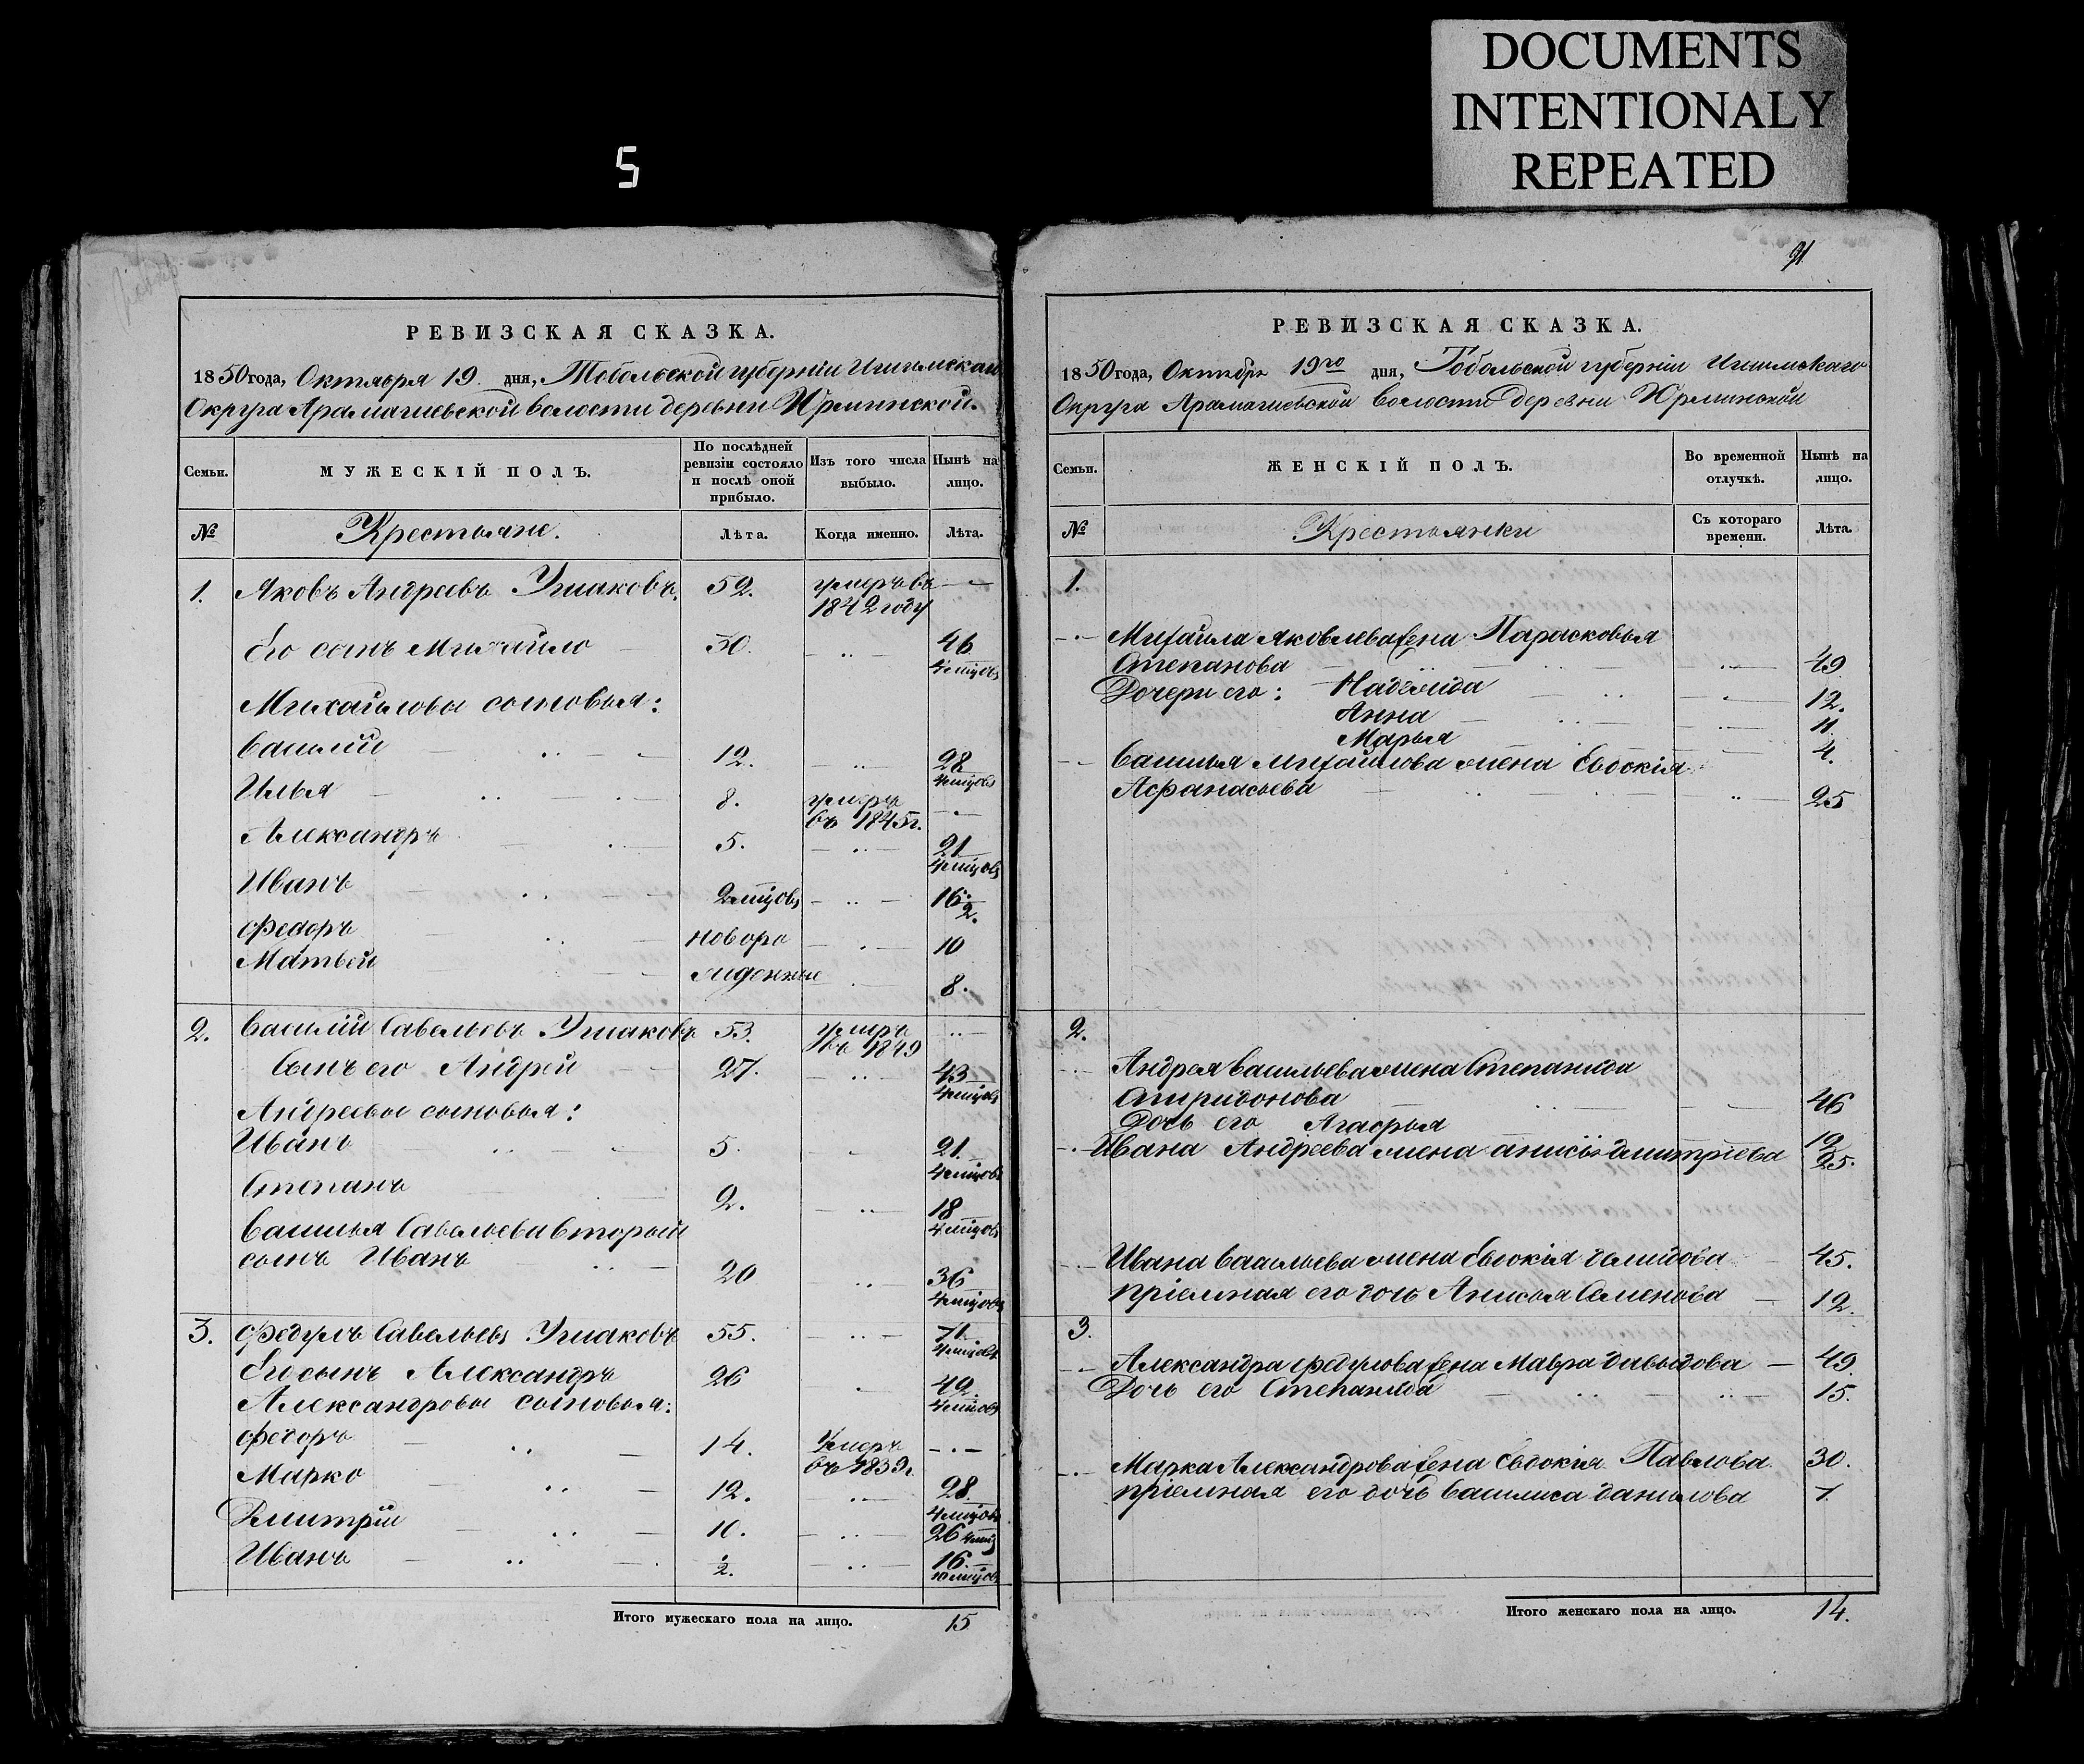 DOCUMENTS
INTENTIONALY
REPEATED
5
91
РЕВИЗСКАЯ СКАЗКА.
1850 года, Октября 19 дня, Тобольской губерніи Ишимскаго
Округа Арамашевской волости деревни Юрминской.
Семьи.
МУЖЕСКІЙ ПОЛЪ.
По послѣдней ревизіи состояло и послѣ оной прибыло.
Изъ того числа выбыло.
Нынѣ на лицо.
№ Крестьяне. Лѣта. Когда именно. Лѣта.
1. Яковъ Андреевъ Ушаковъ. 52. умеръ въ 1842 году —
Его сынъ Михайло 30. 46 4 мѣцовъ
Михайловы сыновья:
Василій 12. 28 4 мѣцовъ
Илья 8. умеръ въ 1845 г.
Александръ 5. 21 4 мѣцовъ
Иванъ 2 мѣцовъ 16 2.
Федоръ новоро 10
Матвей жденные 8.
2. Василій Савельевъ Ушаковъ 53. умеръ въ 1849
Сынъ его Андрей 27. 43 4 мѣцовъ
Андреевы сыновья:
Иванъ 5. 21 4 мѣцовъ
Степанъ 2. 18 4 мѣцовъ
Василья Савельева вторый
сынъ Иванъ 20 36 4 мѣцовъ
3. Федулъ Савельевъ Ушаковъ 55. 71 4 мѣцовъ
Его сынъ Александръ 26 42 4 мѣцовъ
Александровы сыновья:
Федоръ 14. Умеръ въ 1839 г. —
Марко 12. 28 4 мѣцовъ
Дмитрій 10. 26 4 мѣц
Иванъ ½. 16. 10 мѣцовъ
Итого мужескаго пола на лицо. 15
РЕВИЗСКАЯ СКАЗКА.
1850 года, Октября 19го дня, Тобольской губерніи Ишимскаго
Округа Арамашевской волости деревни Юрминской
Семьи.
ЖЕНСКІЙ ПОЛЪ.
Во временной отлучкѣ.
Нынѣ на лицо.
№ Крестьянки Съ котораго времени. Лѣта.
1.
Михайла Яковлева жена Парасковья
Степанова 49
Дочери его: Надежда 12.
Анна 11.
Марья 4.
Василья Михайлова жена Евдокія
Афанасьева 25
2.
Андрея Васильева жена Степанида
Спиридонова 46
Дочь его Агафья 19
Ивана Андреева жена Анисія Дмитріева 25.
Ивана Васильева жена Евдокія Демидова 45.
пріемная его дочь Анисья Семенова 12.
3.
Александра Федулова жена Мавра Давыдова 49.
Дочь его Степанида 15.
Марка Александрова жена Евдокія Павлова 30.
пріемная его дочь Василиса Данилова 7.
Итого женскаго пола на лицо. 14.